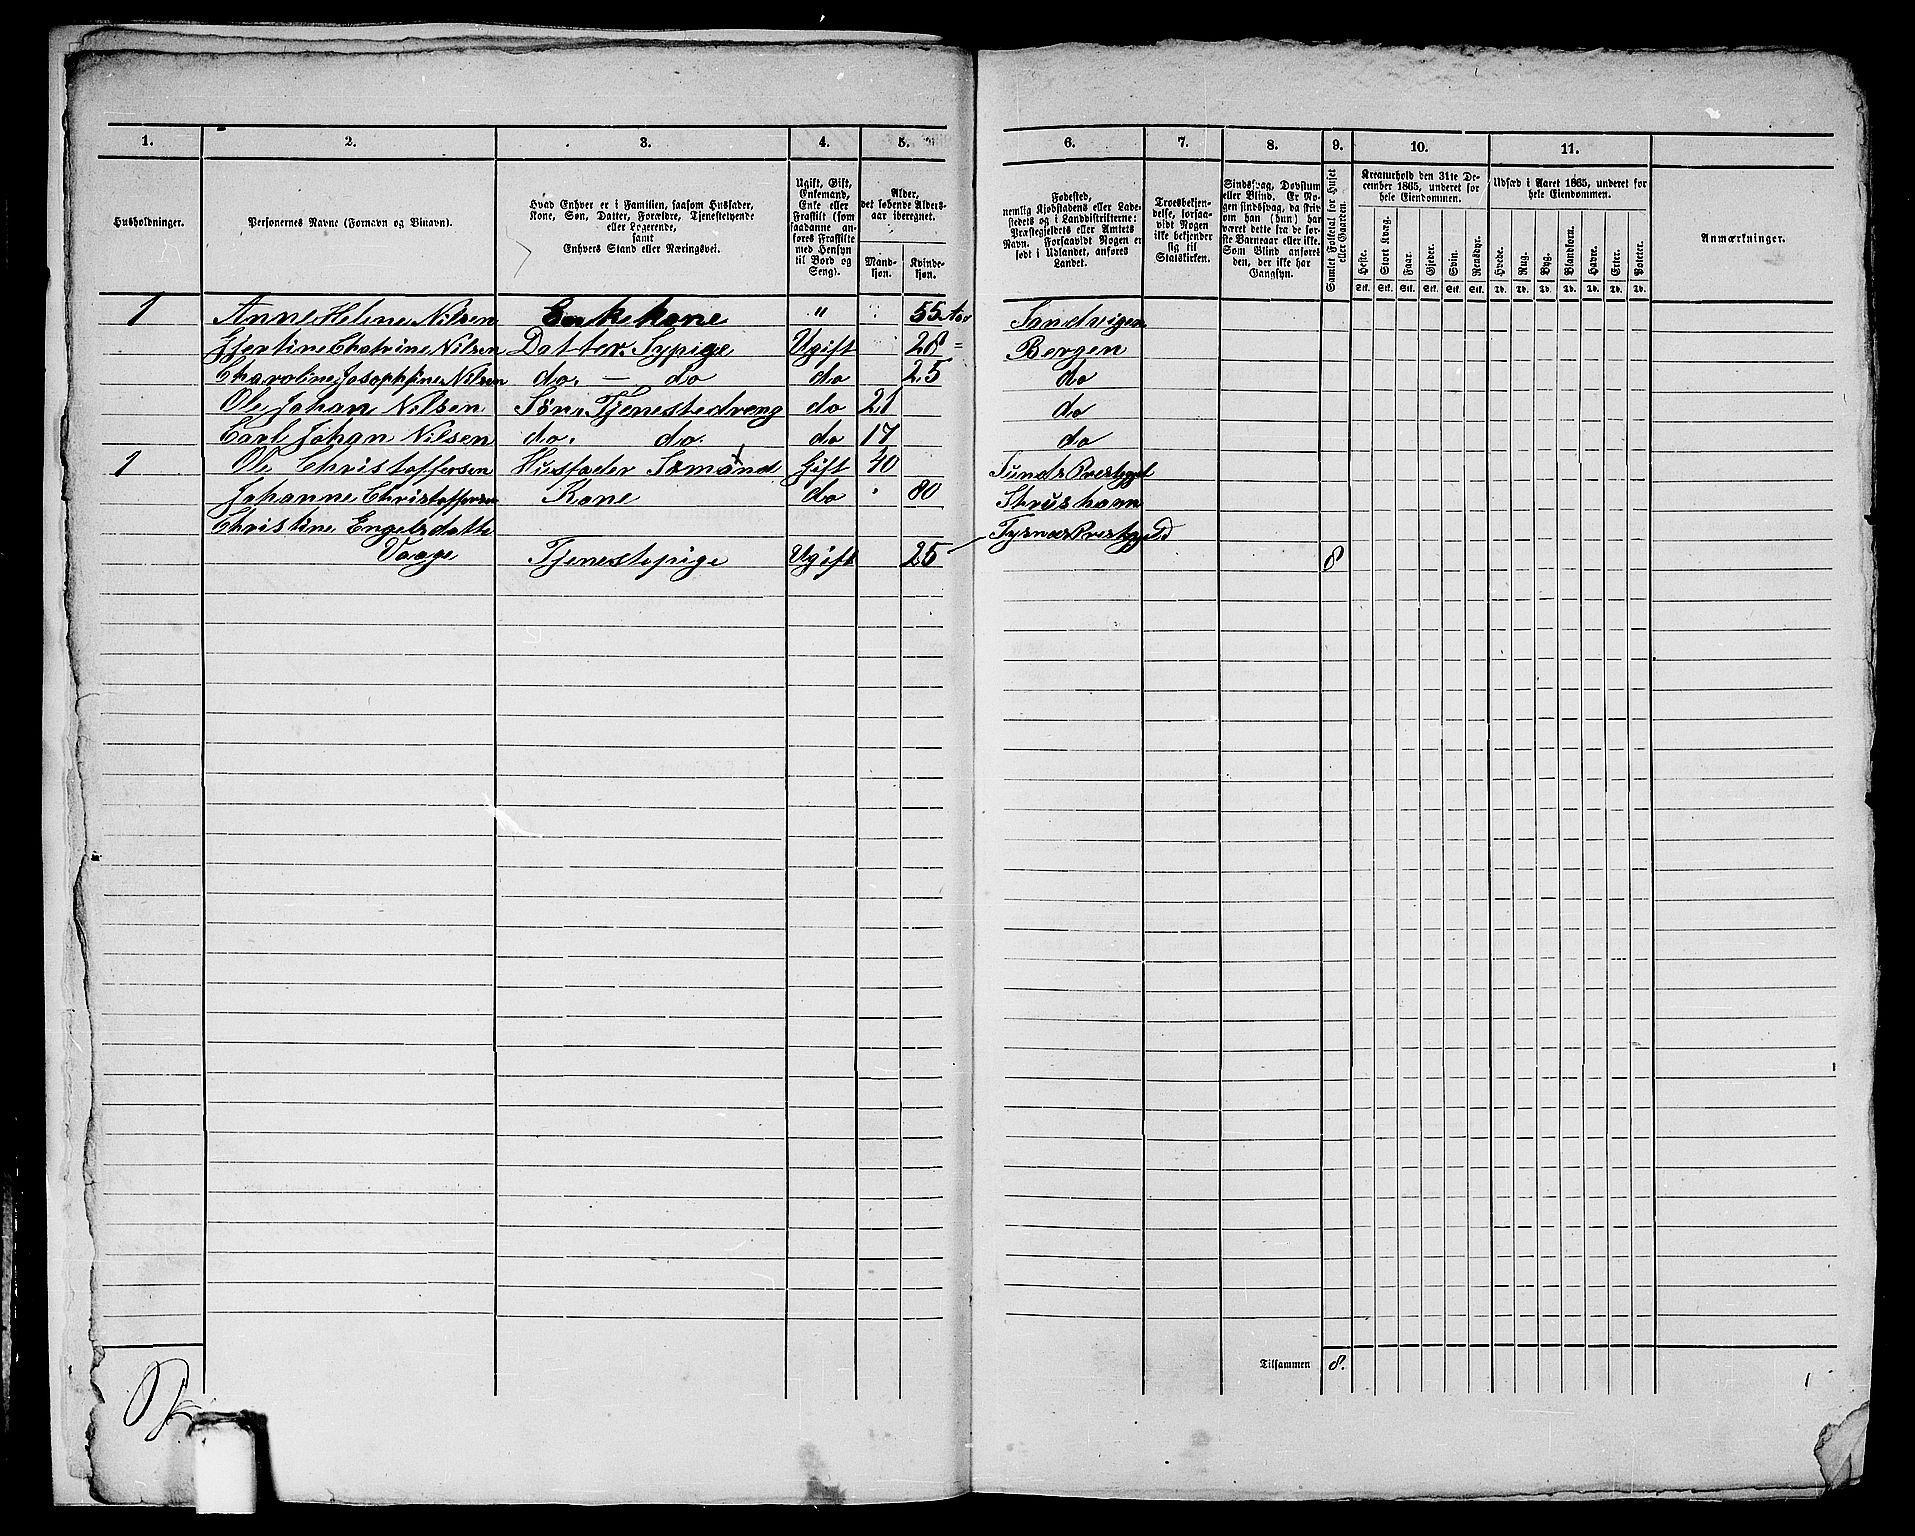 1. 2. 3. 4. 5. 6. 7. 8. 9. 10. 11.
Husholdninger.
Personernes Navne (Fornavn og Binavn).
Hvad Enhver er i Familien, saasom Husfader,
Kone, Søn, Datter, Forældre, Tjenestetyende
eller Logerende,
samt
Enhvers Stand eller Næringsvei.
Ugift, Gift,
Enkemand,
Enke eller
Fraskilt (som
saadanne an-
føres Fraskilte
med Hensyn
til Bord og
Seng).
Alder,
det løbende Alders-
aar iberegnet.
Mand-
kjøn.
Kvinde-
kjøn.
Fødested,
nemlig Kjøbstadens eller Lade-
stedets og i Landdistrikterne:
Præstegjeldets eller Amtets
Navn. Forsaavidt Nogen er
født i Udlandet, anføres
Landet.
Troesbekjen-
delse, forsaa-
vidt Nogen
ikke bekjender
sig til
Statskirken.
Sindssvag, Døvstum
eller Blind. Er No-
gen sindssvag, da skriv
om han (hun) har
været dette fra de før-
ste Barneaar eller ikke.
Som Blind anføres
den, der ikke har
Gangsyn.
Samlet Folketal for Huset
eller Gaarden.
Kreaturhold den 31te De-
cember 1865, underet for
hele Eiendommen.
Heste. Stort Kvæg. Faar. Gjeder. Svin. Rensdyr.
Stk. Stk. Stk. Stk. Stk. Stk.
Udsæd i Aaret 1865, underet for
hele Eiendommen.
Hvede. Rug. Byg. Blandkorn. Havre. Erter. Poteter.
Td. Td. Td. Td. Td. Td. Td.
Anmærkninger.
1 Anne Heline Nilsen Enkekone " 55 Aar Sandvigen
Gjertine Chatrine Nilsen Datter. Sypige Ugift 28 = Bergen
Charoline Josephfine Nilsen do. — do do 25 do
Ole Johan Nilsen Søn. Tjenestedreng do 21 do
Carl Johan Nilsen do. do. do 17 do
1 Ole Christoffersen Husfader Sømand Gift 40 Sunds Prestegjel
Johanne Christoffersen Kone do 80 Strusham
Christine Engelsdatte Tysnes Prestegjeld
Vaage Tjenestepige Ugift 25 8
Tilsammen 8.